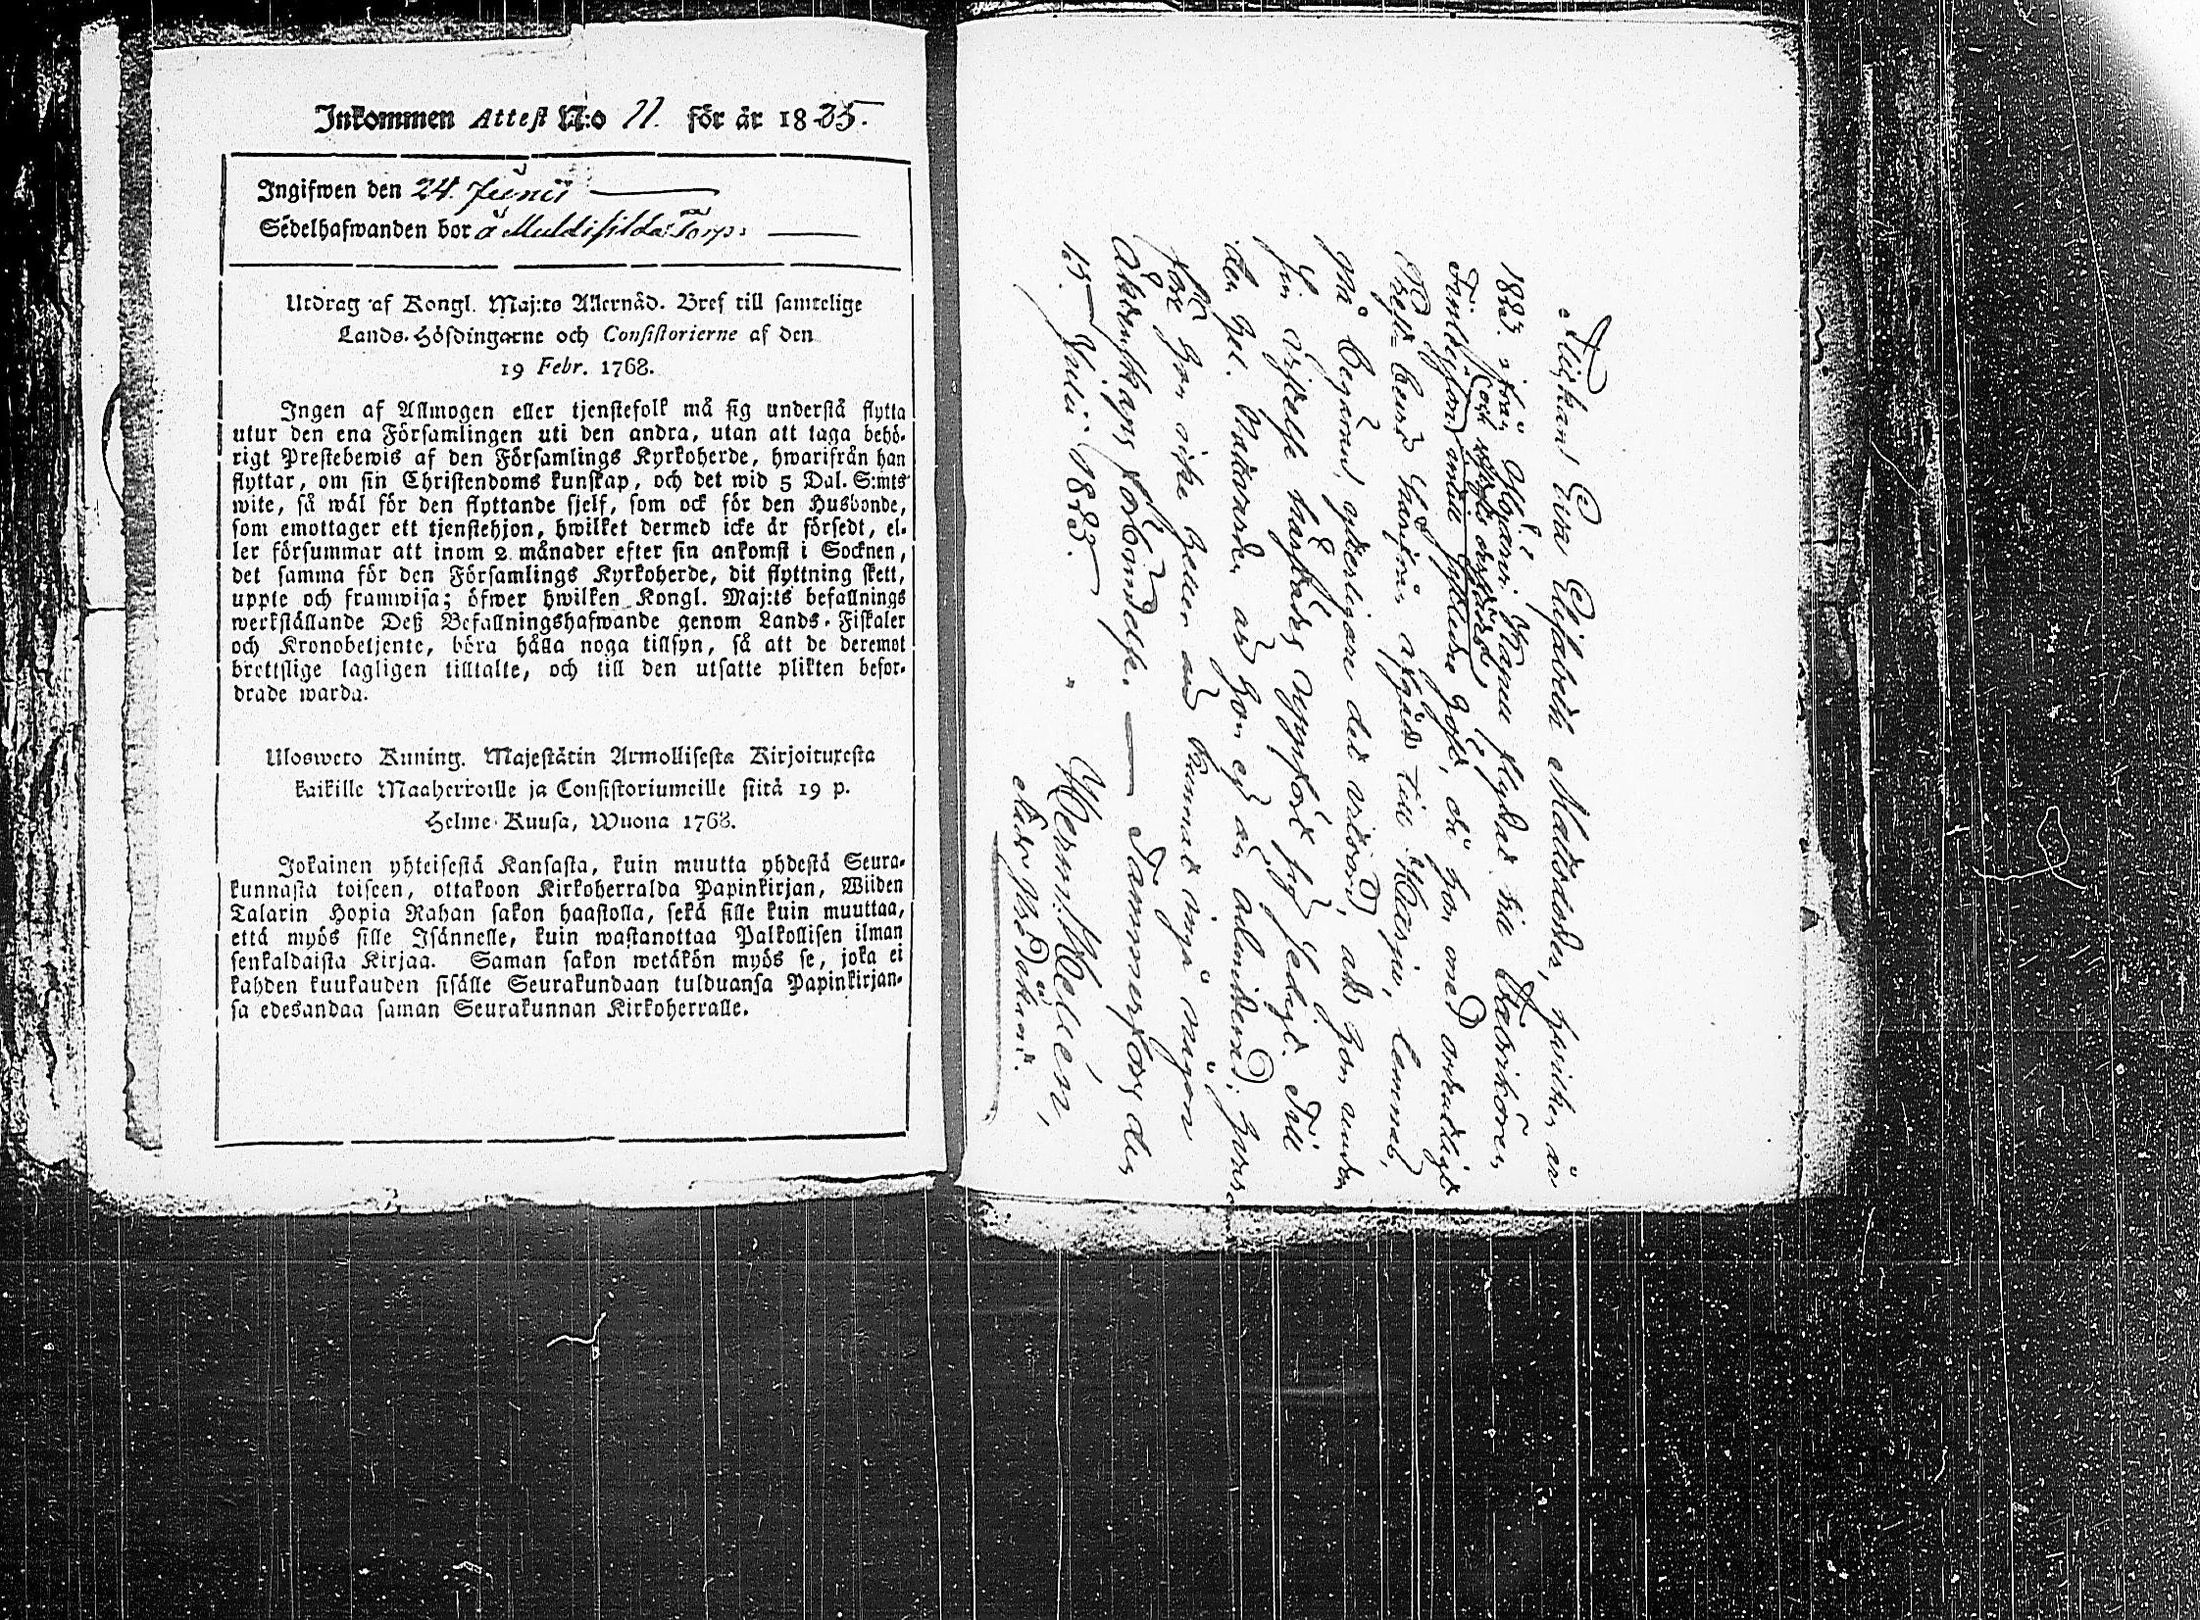 Inkommen Attest N:o 11. för år 1825.
Ingifwen den 24. Junii
Sédelhafwanden bor å Muldisilda Torp:
Utdrag af Kongl. Maj:ts Allernåd. Bref till samtelige
Lands-Höfdingarne och Consistorierne af den
19 Febr. 1768.
Ingen af Allmogen eller tjenstefolk må sig understå flytta
utur den ena Församlingen uti den andra, utan att taga behö-
rigt Prestebewis af den Församlings Kyrkoherde, hwarifrån han
flyttar, om sin Christendoms kunskap, och det wid 5 Dal. S:mts
wite, så wäl för den flyttande sjelf, som ock för den Husbonde,
som emottager ett tjenstehjon, hwilket dermed icke är försedt, el-
ler försummar att inom 2 månader efter sin ankomst i Socknen,
det samma för den Församlings Kyrkoherde, dit flyttning skett,
uppte och framwisa; öfwer hwilken Kongl. Maj:ts befallnings
werkställande Deß Befallningshafwande genom Lands-Fiskaler
och Kronobetjente, böra hålla noga tillsyn, så att de deremot
brottslige lagligen tilltalte, och till den utsatte plikten befor-
drade warda.
Ulosweto Kuning. Majestätin Armollisesta Kirjoituxesta
kaikille Maaherroille ja Consistoriumeille siitä 19 p.
Helme-Kuusa, Wuona 1768.
Jokainen yhteisestä Kansasta, kuin muutta yhdestä Seura-
kunnasta toiseen, ottakoon Kirkoherralda Papinkirjan, Wiiden
Talarin Hopia Rahan sakon haastolla, sekä sille kuin muuttaa,
että myös sille Isännelle, kuin wastanottaa Palkollisen ilman
senkaldaista Kirjaa. Saman sakon wetäkön myös se, joka ei
kahden kuukauden sisälle Seurakundaan tulduansa Papinkirjan-
sa edesandaa saman Seurakunnan Kirkoherralle.
Flickans Eva Elisabeth Mattsdotter, hvilken år
1823. ifrån flyttat till
med ordentligt
Prest-bevis härifrån afgått till lemnat,
på begäran ytterligare det vitsord, att hon under
sin vistelse härstädes uppfört sig sedigt. Till
den Hel. Nattvarden att hon ej än admitterad;
före hon icke heller än kunnat ingå någon
Äktenskaps förbindelse. — Tammerfors den
15. Julii 1823.
Herm. Hellén,